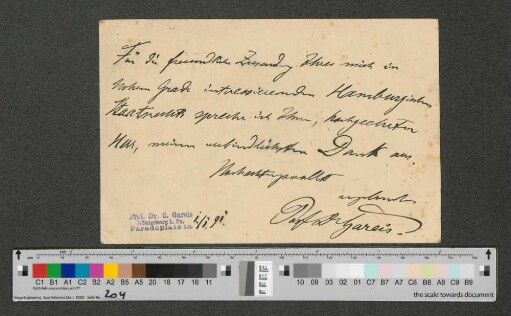 Für die freundliche Zusendung Ihres mich in
hohem Grade interessierenden Hamburgischen
Staatsrechts spreche ich Ihnen, hochgeehrter
Herr, meinen verbindlichsten Dank aus.
Hochachtungsvollst
ergebenst
Prof. Dr Gareis.
Prof. Dr. C. Gareis
Königsberg i. Pr.
Paradeplatz
C1 B1 A1 C2 B2 A2 B5 A5 20 18 17 16 11
10 09 03 02 01 C7 B7 A7 C8 B8 A8 C9 B9
204
the scale towards document